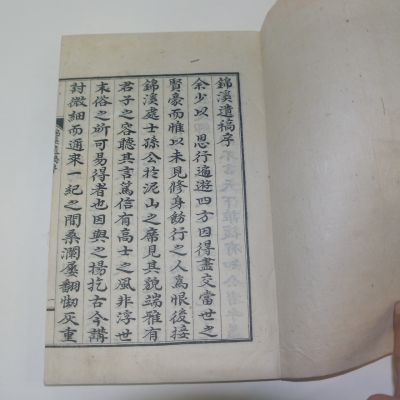 錦溪遺稿序
余少以 恩行遍遊四方因得盡交當世之
賢豪而惟以未見修身飭行之人爲恨後接
錦溪處士孫公於泥山之席見其貌端雅有
君子之容聽其言篤信有高士之風非浮世
末俗之所可易得者也因與之揚扢古今講
討微細而邇來一紀之間桑瀾屢翻劫灰重